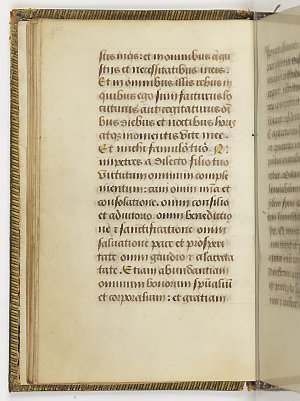 stiis meis: et in omnibus angu
stiis et necessitatibus meis.
Et in omnibus illis rebus in
quibus ego sum facturus lo
cuturus aut cogitaturus om
bus diebus et noctibus horis
atqz momentis vite mee.
Et michi famulo tuo. N.
impetres a dilecto filio tuo
virtutum omnium comple
mentum: cum omni mia et
consolatione. omni consilio
et adiutorio. omni benedictio
ne & sanctificatione omni
saluatione pace et prosperi
tate omni gaudio & alacrita
tate. Etiam abundantiam
omnium bonorum spualium
et corporalium: et gratiam